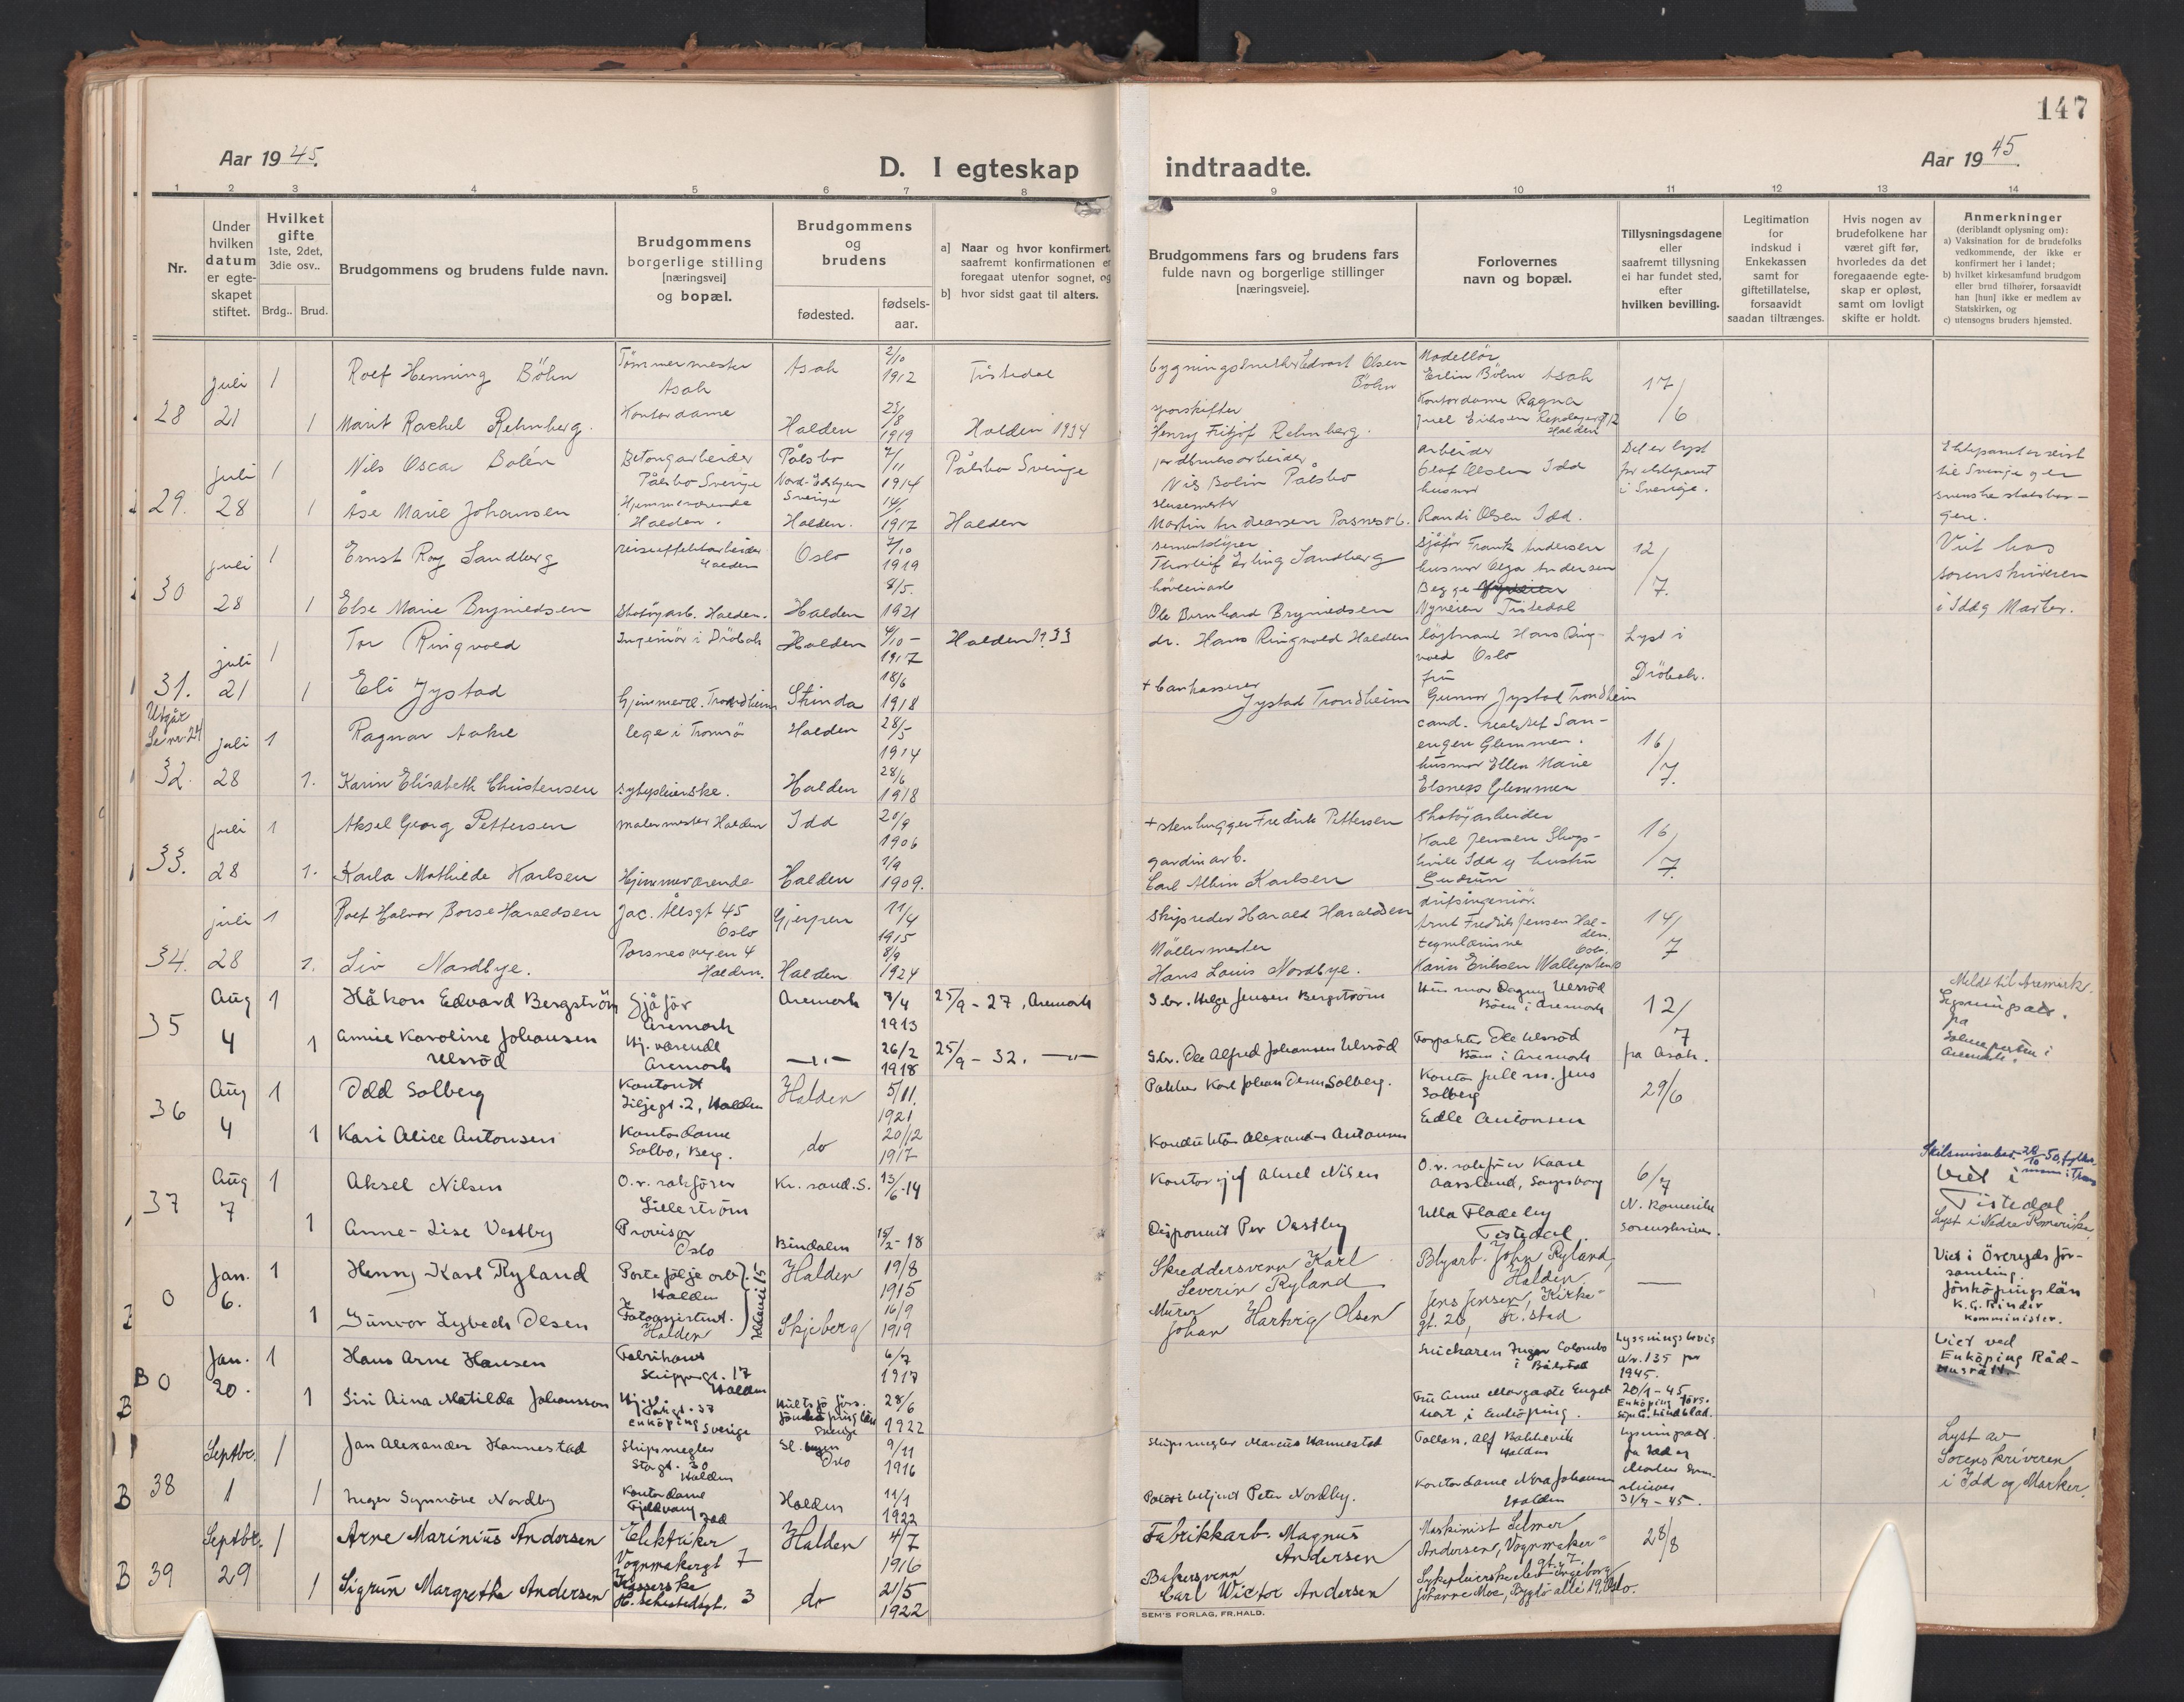 147
Aar 19 45.
D. I egteskap
indtraadte.
Aar 19 45.
1 2 3 4 5 6 7 8 9 10 11 12 13 14
Nr.
Under hvilken datum er egte-skapet stiftet.
Hvilket gifte
1ste, 2det, 3die osv..
Brdg..
Brud.
Brudgommens og brudens fulde navn.
Brudgommens borgerlige stilling [næringsvei] og bopæl.
Brudgommens og brudens
fødested.
fødsels-aar.
a] Naar og hvor konfirmert,
saafremt konfirmationen er
foregaat utenfor sognet, og
b] hvor sidst gaat til alters.
Brudgommens fars og brudens fars
fulde navn og borgerlige stillinger
[næringsveie].
Forlovernes
navn og bopæl.
Tillysningsdagene
eller
saafremt tillysning
ei har fundet sted,
efter
hvilken bevilling.
Legitimation
for
indskud i
Enkekassen
samt for
giftetillatelse,
forsaavidt
saadan tiltrænges.
Hvis nogen av
brudefolkene har
været gift før,
hvorledes da det
foregaaende egte-
skap er opløst,
samt om lovligt
skifte er holdt.
Anmerkninger
(deriblandt oplysning om):
a) Vaksination for de brudefolks
vedkommende, der ikke er
konfirmert her i landet;
b) hvilket kirkesamfund brudgom
eller brud tilhører, forsaavidt
han [hun] ikke er medlem av
Statskirken, og
c) utensogns bruders hjemsted.
28 juli 21 1 Rolf Henning Böhn Tømmermester Asak Asak 2/10 1912 Tistedal
Edvart Olsen Böhn Modellör Erlin Böhn Asak 17/6
1 Marit Rachel Rehnberg. Kontordame Halden 25/8 1919 Halden 1934
sporskifter Henry Fritjof Rehnberg. Kontordame Ragna Juel Eriksen Halden
29. juli 28 1 Nils Oscar Bolén Betongarbeider Pålsbo Sverige Pålsbo Sverige 7/11 1914 Pålsbo Sverige
jordbruksarbeider Nils Bolin Pålsbo arbeider Olaf Olsen Idd Det er lyst for ekteparet i Sverige.
Ekteparet er reist til Sverige og er svenske statsbor-gere.
1 Åse Marie Johansen Hjemmeværende Halden. Halden. 1917 Halden
slusemester Martin Andreassen husmor Randi Olsen Idd.
30 juli 28 1 Ernst Roy Sandberg Halden Oslo 7/10 1919
Thorleif Erling Sandberg Sjåfør Frank Andersen husmor Olga Andersen 12/7.
Viet hos sorenskriveren i Idd og Marker.
1 Else Marie Brynildsen Skotøyarb. Halden. Halden 8/5. 1921
Ole Bernhard Brynildsen Begge Nyveien Tistedal
31. juli 21 1 Tor Ringvold Ingeniör i Dröbak Halden 4/10 - 1917 Halden 1933
dr. Hans Ringvold Halden löytnant Hans Ring-vold Oslo Lyst i Dröbak.
1 Eli Jystad Hjemmevær. Trondheim Strinda 18/6 1918
+ bankkasserer Jystad Trondheim fru Gunvor Jystad Trondheim
Utgår
Se nr. 24
32. juli 28 1 Ragnar Aakre lege i Tromsö Halden 28/5 1914
cand. Glemmen. 16/7.
1. Karin Elisabeth Christensen sykepleierske. Halden 28/6 1918
husmor Ellen Marie Elsness Glemmen
33. juli 28 1 Aksel Georg Pettersen malermester Halden Idd 20/9 1906
+ stenhugger Fredrik Pettersen Skotöyarbeider Karl Jensen 16/7.
1. Karla Mathilde Karlsen Hjemmeværende Halden 1909.
gardinarb. Carl Albin Karlsen Idd og hustru Gudrun
34. juli 28 1 Rolf Halvor Borse Haraldsen Jac. Allsgt 45 Oslo Gjerpen 11/4 1915
Skipsreder Harald Haraldsen driftsingeniör. Arnt Fredrik Jensen Hal-den. 14/7
1. Liv Nordbye. Porsnesveien 4 Halden. Halden 8/9 1924
Möllermester Hans Louis Nordbye. Karin Eriksen
35 Aug 4 1 Håkon Edvard Bergström Sjåför Aremark Aremark 7/4 1913 25/9 - 27, Aremark
Gbr. Helge Jensen Bergström Husmor Dagny Ulsröd Böen i Aremark 12/7 fra Asak.
Meldt til Aremark.
1 Amie Karoline Johansen Ulsröd Hj. værende Aremark —„— 26/2 1918 25/9 - 32. —„—
Gbr. Ole Alfred Johansen Ulsröd Forpakter Ole Ulsröd Böen i Aremark
36 Aug 4 1 Odd Solberg Kontorist Liljegt. 2, Halden Halden 5/11. 1921
Pakker Karl Johan Olsen Solberg. Kontorfullm. Jens Solberg 29/6
1 Kari Alice Antonsen Kontordame Solbo, Berg. do 20/12 1917
Konduktör Alexander Antonsen Edle Antonsen
37 Aug 7 1 Aksel Nilsen O.r. sakförer Lilleström Kr. sand. S. 13/6-14
Kontorsjef Aksel Nilsen O.r. sakförer Kaare Aarsland, Sarpsborg 6/7
N. Romerike sorenskriver.
Viet i Tistedal
Lyst i Nedre Romerike
1 Anne-Lise Vestby Provisor Oslo Bindalen 15/2-18
Disponent Per Vestby Ulla Fladeby Tistedal.
0 Jan. 6. 1 Henry Karl Ryland Portefölje arb. Halden Halden 19/8 1915
Skreddersvenn Karl Severin Ryland Blyarb. John Ryland, Halden —
Viet i Överyds för-samling Jönköpings län K. G. Rinder Komminister.
1 Gunvor Lybech Olsen Fotoassistent. Halden Skjeberg 16/9 1919
Murer Johan Hartvig Olsen Jens Jensen, Kirke-gt. 26, Fr.stad
B 0 Jan. 20. 1 Hans Arne Hansen Skippergt. 17 Halden 6/7 1917
Snickaren Inger Colombo i Bålstad Lysningsbevis Nr. 135 1945.
Viet ved Enköping Råd-husrätt.
B 1 Siri Aina Matilda Johansson Enköping Sverige Hultsjö förs. Jönköping län Sverige 28/6 1922
Fru Anne Margarete Engel-hart, i Enköping. 20/1-45 Enköping förs.
38 Septbr. 1 1 Jan Alexander Hannestad Skipsmegler Storgt. 30 Halden Oslo 9/11 1916
Skipsmegler Marcus Hannestad Alf Bakkevik Halden 31/7-45.
Lyst av Sorenskriveren i Idd og Marker.
B 1 Inger Synnöve Nordby Kontordame Idd Halden 11/1 1922
Politibetjent Peter Nordby. Kontordame Nora Johansen Halden
39 Septbr. 29 1 Arne Marinius Andersen Elektriker Vognmakergt 7 Halden 4/7 1916
Fabrikkarb. Magnus Andersen Maskinist Selmer Andersen, Vognmaker-gt. 7. 28/8
B 1 Sigrun Margrethe Andersen Kasserske H. Sehestedsgt. 3 do 21/5 1922
Bakersvenn Carl Wictor Andersen Ingeborg Johanne Moe, Bygdö allé 19, Oslo.
SEM'S FORLAG, FR.HALD.